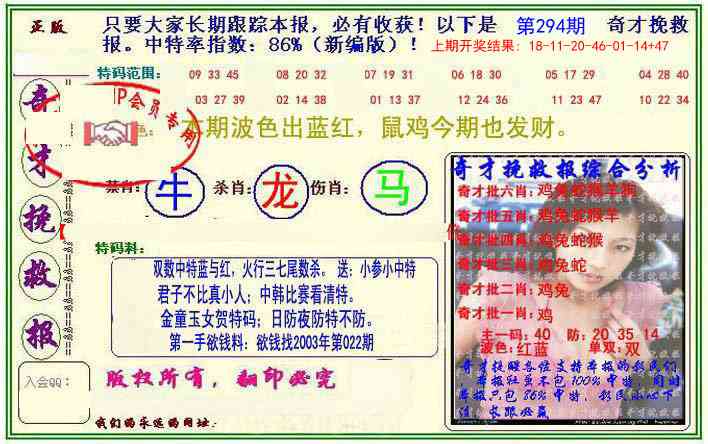 正版
只要大家长期跟踪本报，必有收获！以下是 第294期 奇才挽救
报。中特率指数：86%（新编版）！ 上期开奖结果：18-11-20-46-01-14+47
特码范围： 09 33 45 08 20 32 07 19 31 06 18 30 05 17 29 04 28 40
03 27 39 02 14 38 01 13 37 12 24 36 11 23 47 10 22 34
P会员专用
色： 本期波色出蓝红，鼠鸡今期也发财。
奇才挽救报
禁肖： 牛 杀肖： 龙 伤肖： 马
特码料：
双数中特蓝与红，火行三七尾数杀。 送；小参小中特
君子不比真小人；中韩比赛看清特。
金童玉女贺特码；日防夜防特不防。
第一手欲钱料：欲钱找2003年第022期
奇才挽救报综合分析
奇才批六肖：鸡兔蛇猴羊狗
奇才批五肖：鸡兔蛇猴羊
奇才批四肖：鸡兔蛇猴
奇才批三肖：鸡兔蛇
奇才批二肖：鸡兔
奇才批一肖：鸡
主一码：40 防：20 35 14
波色：红蓝 单双：双
奇才挽救各位支持本报的彩民们
，本报很虽不包100%中特，同时
本报只包86%中特，彩民小心下
注，长跟必赢
入会QQ：
版权所有，翻印必究
我们的永远的网址：